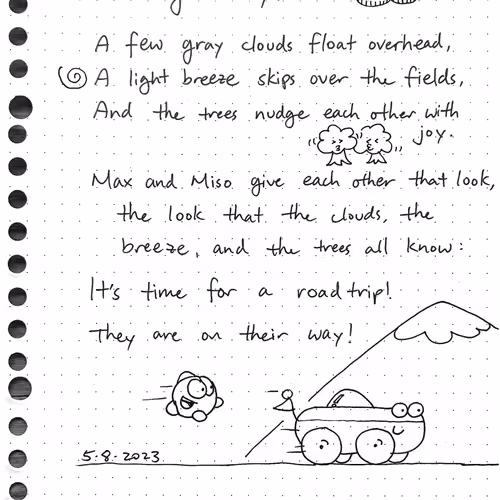 A few gray clouds float overhead,
A light breeze skips over the fields,
And the trees nudge each other with
joy.
Max and Miso give each other that look,
the look that the clouds, the
breeze, and the trees all know:
It's time for a road trip!
They are on their way!
5.8.2023